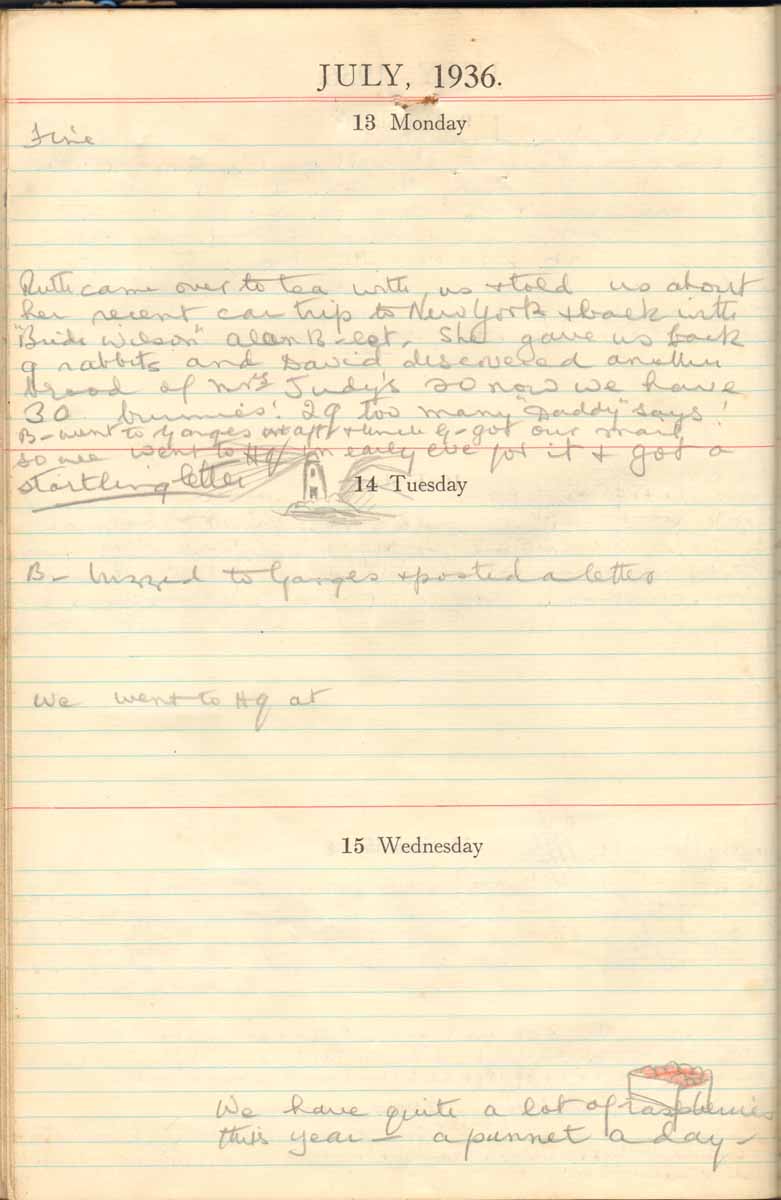 JULY, 1936.
13 Monday
Fine
Ruth came over to tea with us & told us about
her recent car trip to New York & back with
"Bride Wilson" Alan B- & gt. She gave us back
9 rabbits and David discovered another
brood of Mrs Judy's so now we have
30 bunnies! 29 too many "Daddy" says!
B- went to Ganges in aft & Uncle G- got our mail
so we went to Hq in early eve for it & got a
startling letter
14 Tuesday
B- buzzed to Ganges & posted a letter
We went to Hq at
15 Wednesday
We have quite a lot of raspberries
this year - a punnet a day -